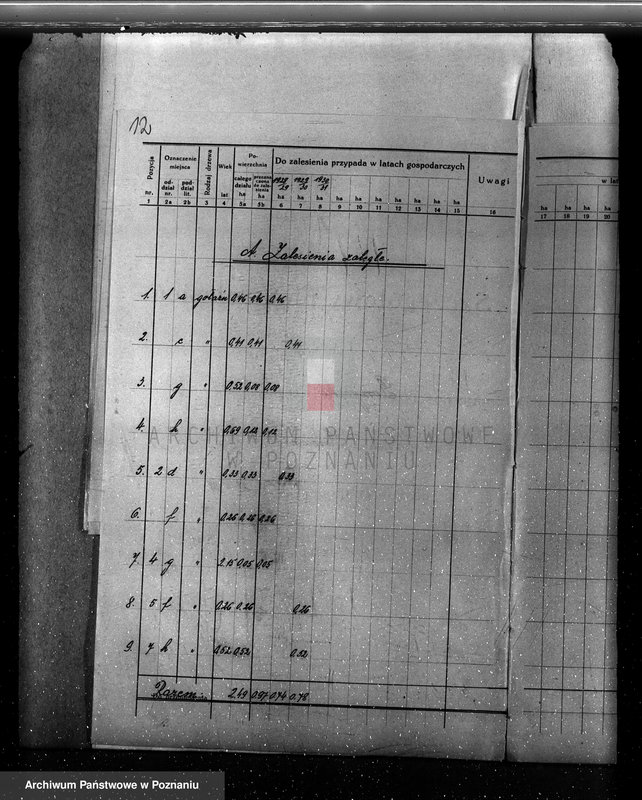 12
Pozycja nr. Oznaczenie miejsca oddział nr. pododdział lit. Rodzaj drzewa Wiek lat Powierzchnia całego działu ha przeznaczona do zalesienia ha Do zalesienia przypada w latach gospodarczych Uwagi
1928/29 1929/30 1930/31
ha ha ha ha ha ha ha ha ha ha
1 2a 2b 3 4 5a 5b 6 7 8 9 10 11 12 13 14 15 16 17 18 19 20
A. Zalesienia zaległe.
1. 1 a gołaźń 0,46 0,46 0,46
2. c " 0,41 0,41 0,41
3. g " 0,52 0,08 0,08
4. h " 0,69 0,12 0,12
5. 2 d " 0,33 0,33 0,33
6. f " 0,26 0,26 0,26
7. 4 g " 2,15 0,05 0,05
8. 5 f " 0,26 0,26 0,26
9. 7 h " 0,52 0,52 0,52
Razem: 2,49 0,97 0,74 0,78
ARCHIWUM PAŃSTWOWE
W POZNANIU
Archiwum Państwowe w Poznaniu